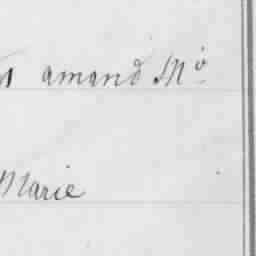 amand Mº
Marie